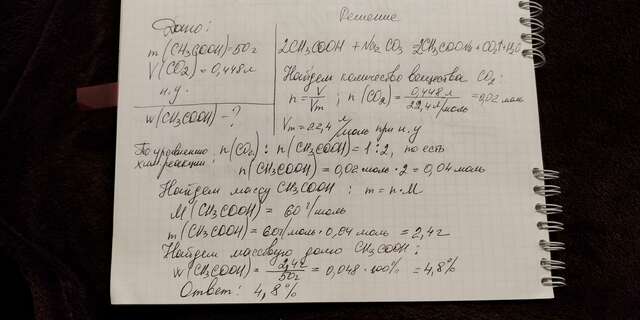 Решение
Дано:
m(CH₃COOH)=50г
V(CO₂)=0,448л
н.у.
w(CH₃COOH)-?
2CH₃COOH + Na₂CO₃ = 2CH₃COONa + CO₂↑+H₂O
Найдем количество вещества CO₂:
n = V/Vm ; n(CO₂) = 0,448л / 22,4 л/моль = 0,02 моль
Vm = 22,4 л/моль при н.у
По уравнению n(CO₂) : n(CH₃COOH) = 1:2, то есть
хим. реакции:
n(CH₃COOH) = 0,02 моль · 2 = 0,04 моль
Найдем массу CH₃COOH : m = n·M
M(CH₃COOH) = 60 г/моль
m(CH₃COOH) = 60г/моль · 0,04 моль = 2,4г
Найдем массовую долю CH₃COOH:
w(CH₃COOH) = 2,4г / 50г = 0,048 · 100% = 4,8%
Ответ: 4,8%